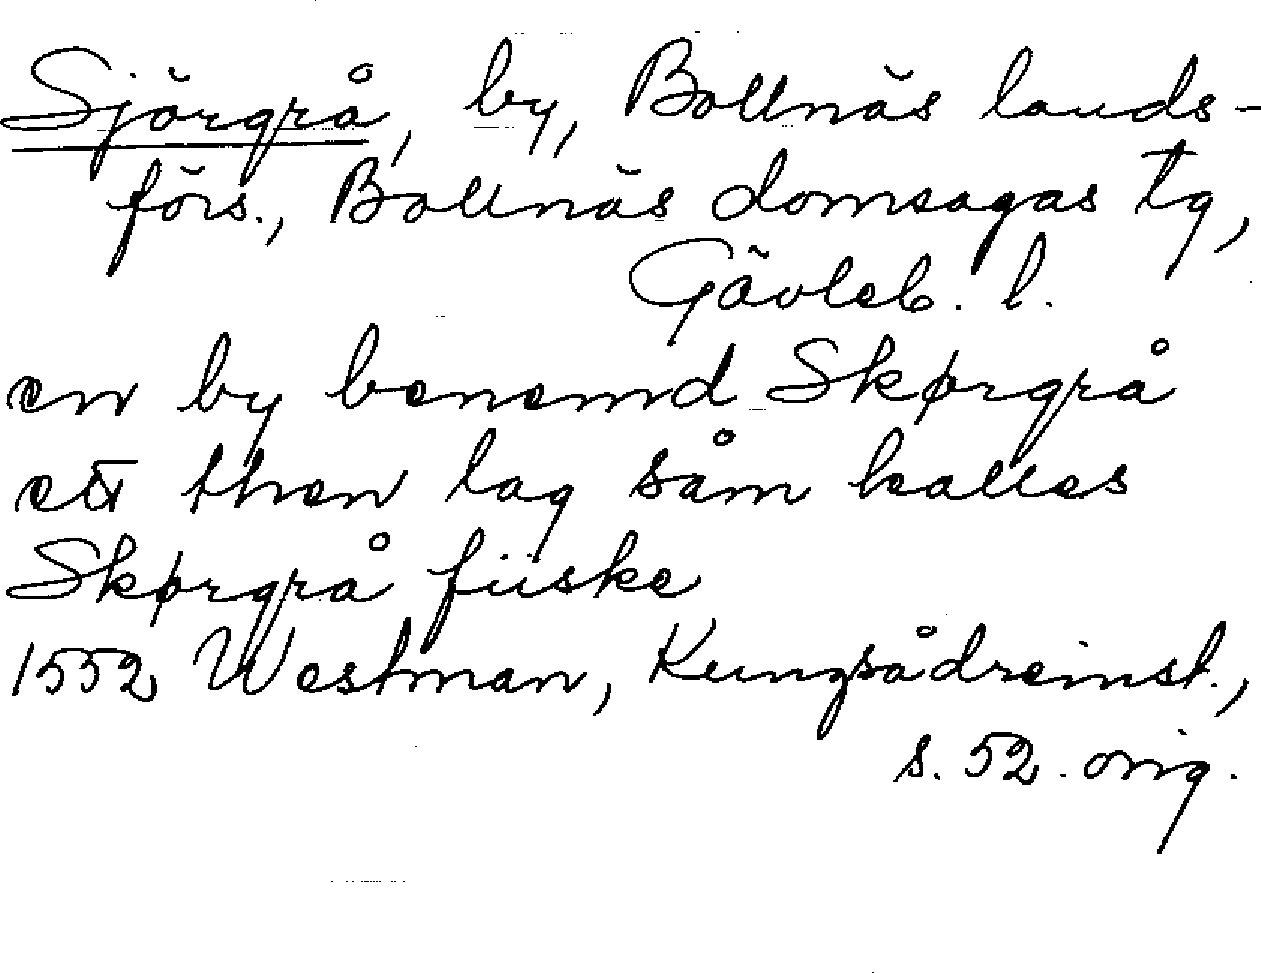 Sjörgrå, by, Bollnäs lands-
förs., Bollnäs domsagas tg,
Gävleb. l.
en by benemd Skørgrå
ett then lag såm kalles
Skørgrå füske
1552 Westman, Kungsådreinst.,
s. 52. orig.